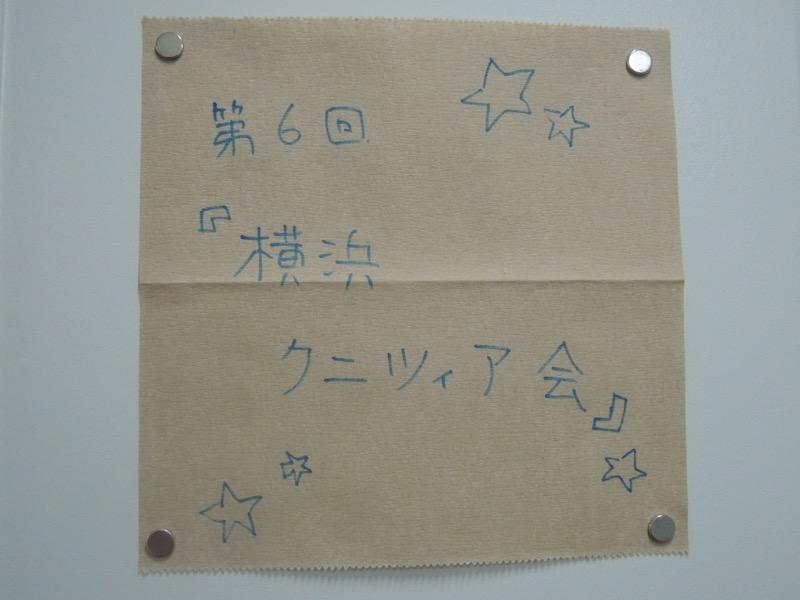 第6回
『横浜
クニツィア会』